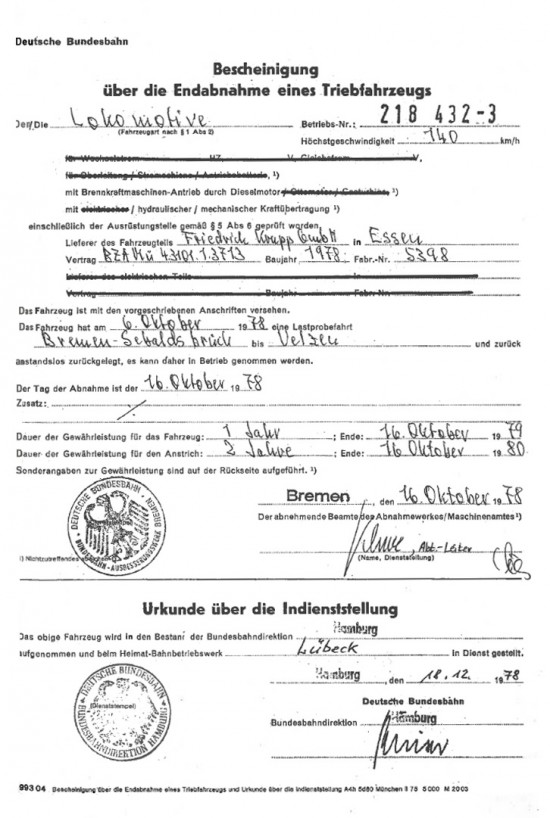 Deutsche Bundesbahn
Bescheinigung
über die Endabnahme eines Triebfahrzeugs
Der/Die Lokomotive Betriebs-Nr.: 218 432-3
(Fahrzeugart nach § 1 Abs 2)
Höchstgeschwindigkeit 140 km/h
für Wechselstrom HZ, V, Gleichstrom V,
für Oberleitung / Stromschiene / Antriebsbatterie, ¹)
mit Brennkraftmaschinen-Antrieb durch Dieselmotor / Ottomotor / Gasturbine, ¹)
mit elektrischer / hydraulischer / mechanischer Kraftübertragung ¹)
einschließlich der Ausrüstungsteile gemäß § 5 Abs 6 geprüft worden.
Lieferer des Fahrzeugteils Friedrich Krupp GmbH in Essen
Vertrag BZA Mü 43101.1.3713 Baujahr 1978 Fabr.-Nr. 5398
Lieferer des elektrischen Teils in
Vertrag Baujahr Fabr.-Nr.
Das Fahrzeug ist mit den vorgeschriebenen Anschriften versehen.
Das Fahrzeug hat am 6. Oktober 1978 eine Lastprobefahrt
Bremen-Sebaldsbrück bis Uelzen und zurück
anstandslos zurückgelegt, es kann daher in Betrieb genommen werden.
Der Tag der Abnahme ist der 16. Oktober 1978
Zusatz:
Dauer der Gewährleistung für das Fahrzeug: 1 Jahr ; Ende: 16. Oktober 1979
Dauer der Gewährleistung für den Anstrich: 2 Jahre ; Ende: 16. Oktober 1980
Sonderangaben zur Gewährleistung sind auf der Rückseite aufgeführt. ¹)
DEUTSCHE BUNDESBAHN BUNDESBAHN-AUSBESSERUNGSWERK BREMEN
Bremen, den 16. Oktober 1978
Der abnehmende Beamte des Abnahmewerkes/Maschinenamtes¹)
Abt.-Leiter
(Name, Dienststellung)
1) Nichtzutreffendes
Urkunde über die Indienststellung
Das obige Fahrzeug wird in den Bestand der Bundesbahndirektion Hamburg
aufgenommen und beim Heimat-Bahnbetriebswerk Lübeck in Dienst gestellt.
Hamburg, den 18.12. 1978
DEUTSCHE BUNDESBAHN BUNDESBAHNDIREKTION HAMBURG
(Dienststempel)
Deutsche Bundesbahn
Bundesbahndirektion Hamburg
993 04 Bescheinigung über die Endabnahme eines Triebfahrzeugs und Urkunde über die Indienststellung A4h 5d80 München 8 78 5 000 M 2003